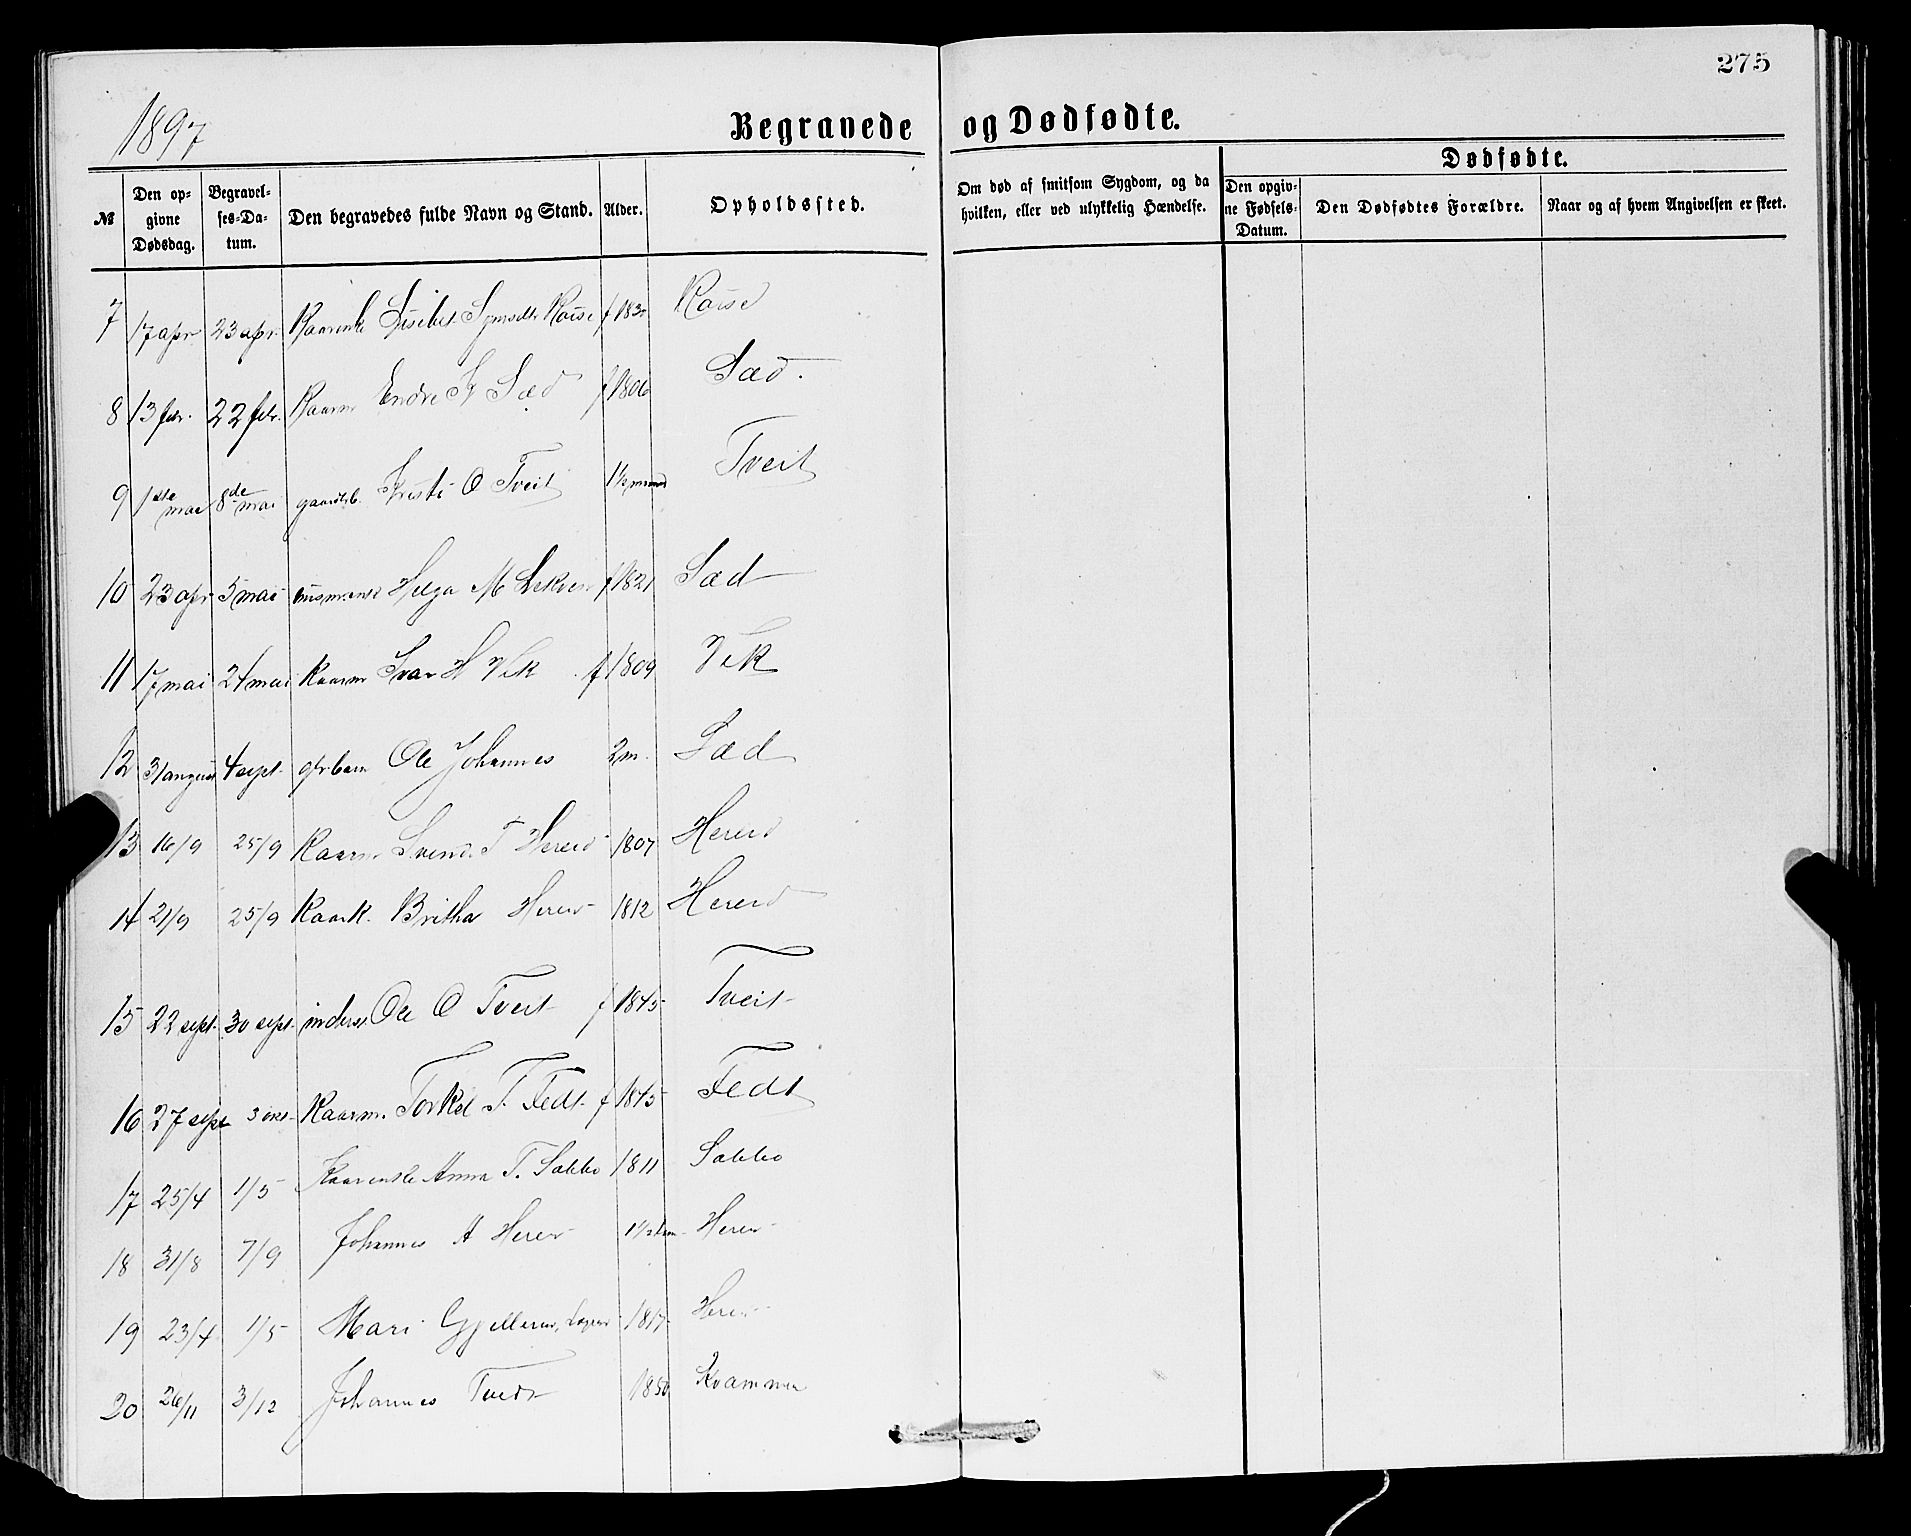 275
1897
Begravede og Dødfødte.
№ Den opgivne Dødsdag. Begravelses-Datum. Den begravedes fulde Navn og Stand. Alder. Opholdssted. Om død af smitsom Sygdom, og da hvilken, eller ved ulykkelig Hændelse.
Dødfødte.
Den opgivne Fødsels-Datum. Den Dødfødtes Forældre. Naar og af hvem Angivelsen er skeet.
7 17 apr 23 apr. f 183
8 13 febr. 22 febr. Kaarm Endre Sæd f 1806 Sæd.
9 1ste mai 8de mai Kristi O Tveit 1½ maaned Tveit
10 23 apr 5 mai Helga M f 1821 Sæd
11 17 mai 24 mai Kaarm Ivar H Vik f 1809 Vik
12 31 august 4 sept. Ole Johannes 2 m. Sæd
13 16/9 25/9 Kaarm Svend T Hereid 1807 Hereid
14 21/9 25/9 Kaark. Britha Hereid 1812 Hereid
15 22 sept. 30 sept. inders. Ole O Tveit f 1845 Tveit
16 27 sept 3 okt. Kaarm. Torkel T. Fedt f 1845 Fedt
17 25/4 1/5 Kaarenke Anna T. Sæbbø 1811 Sæbbø
18 31/8 7/9 Johannes A Hereid Hereid
19 23/4 1/5 Mari 1817 Hereid
20 26/11 3/12 Johannes Tvedt 1850 Kvammen